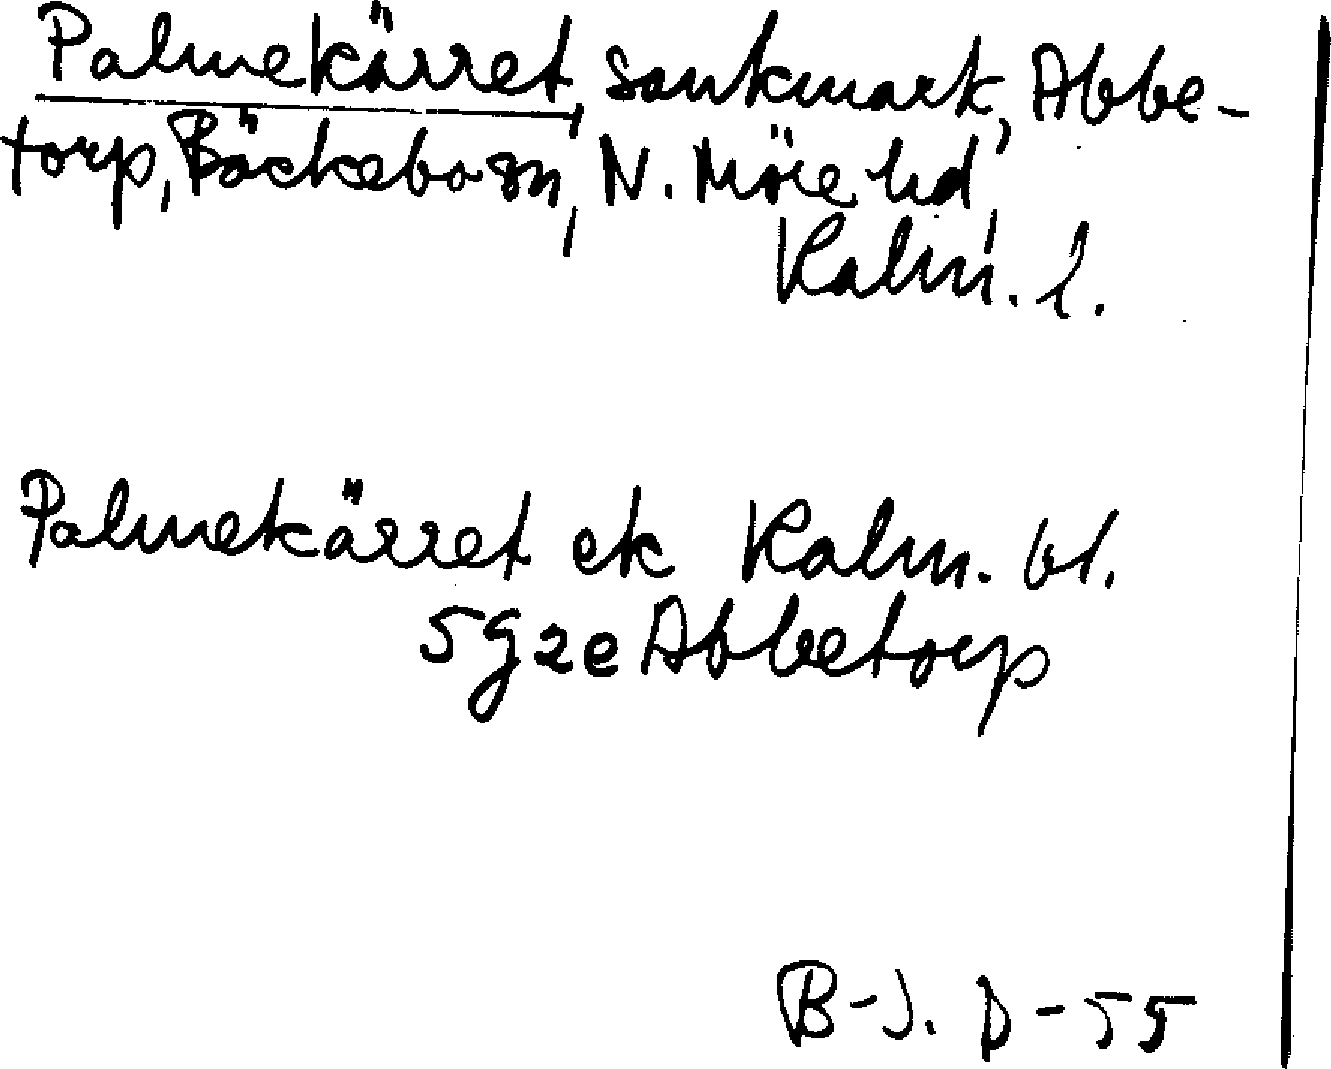 Palmekärret, sankmark, Abbe-
torp, Bäckebo sn, N. Möre hd,
Kalm. l.
Palmekärret ek Kalm. bl.
5g2e Abbetorp
B-J. D-55